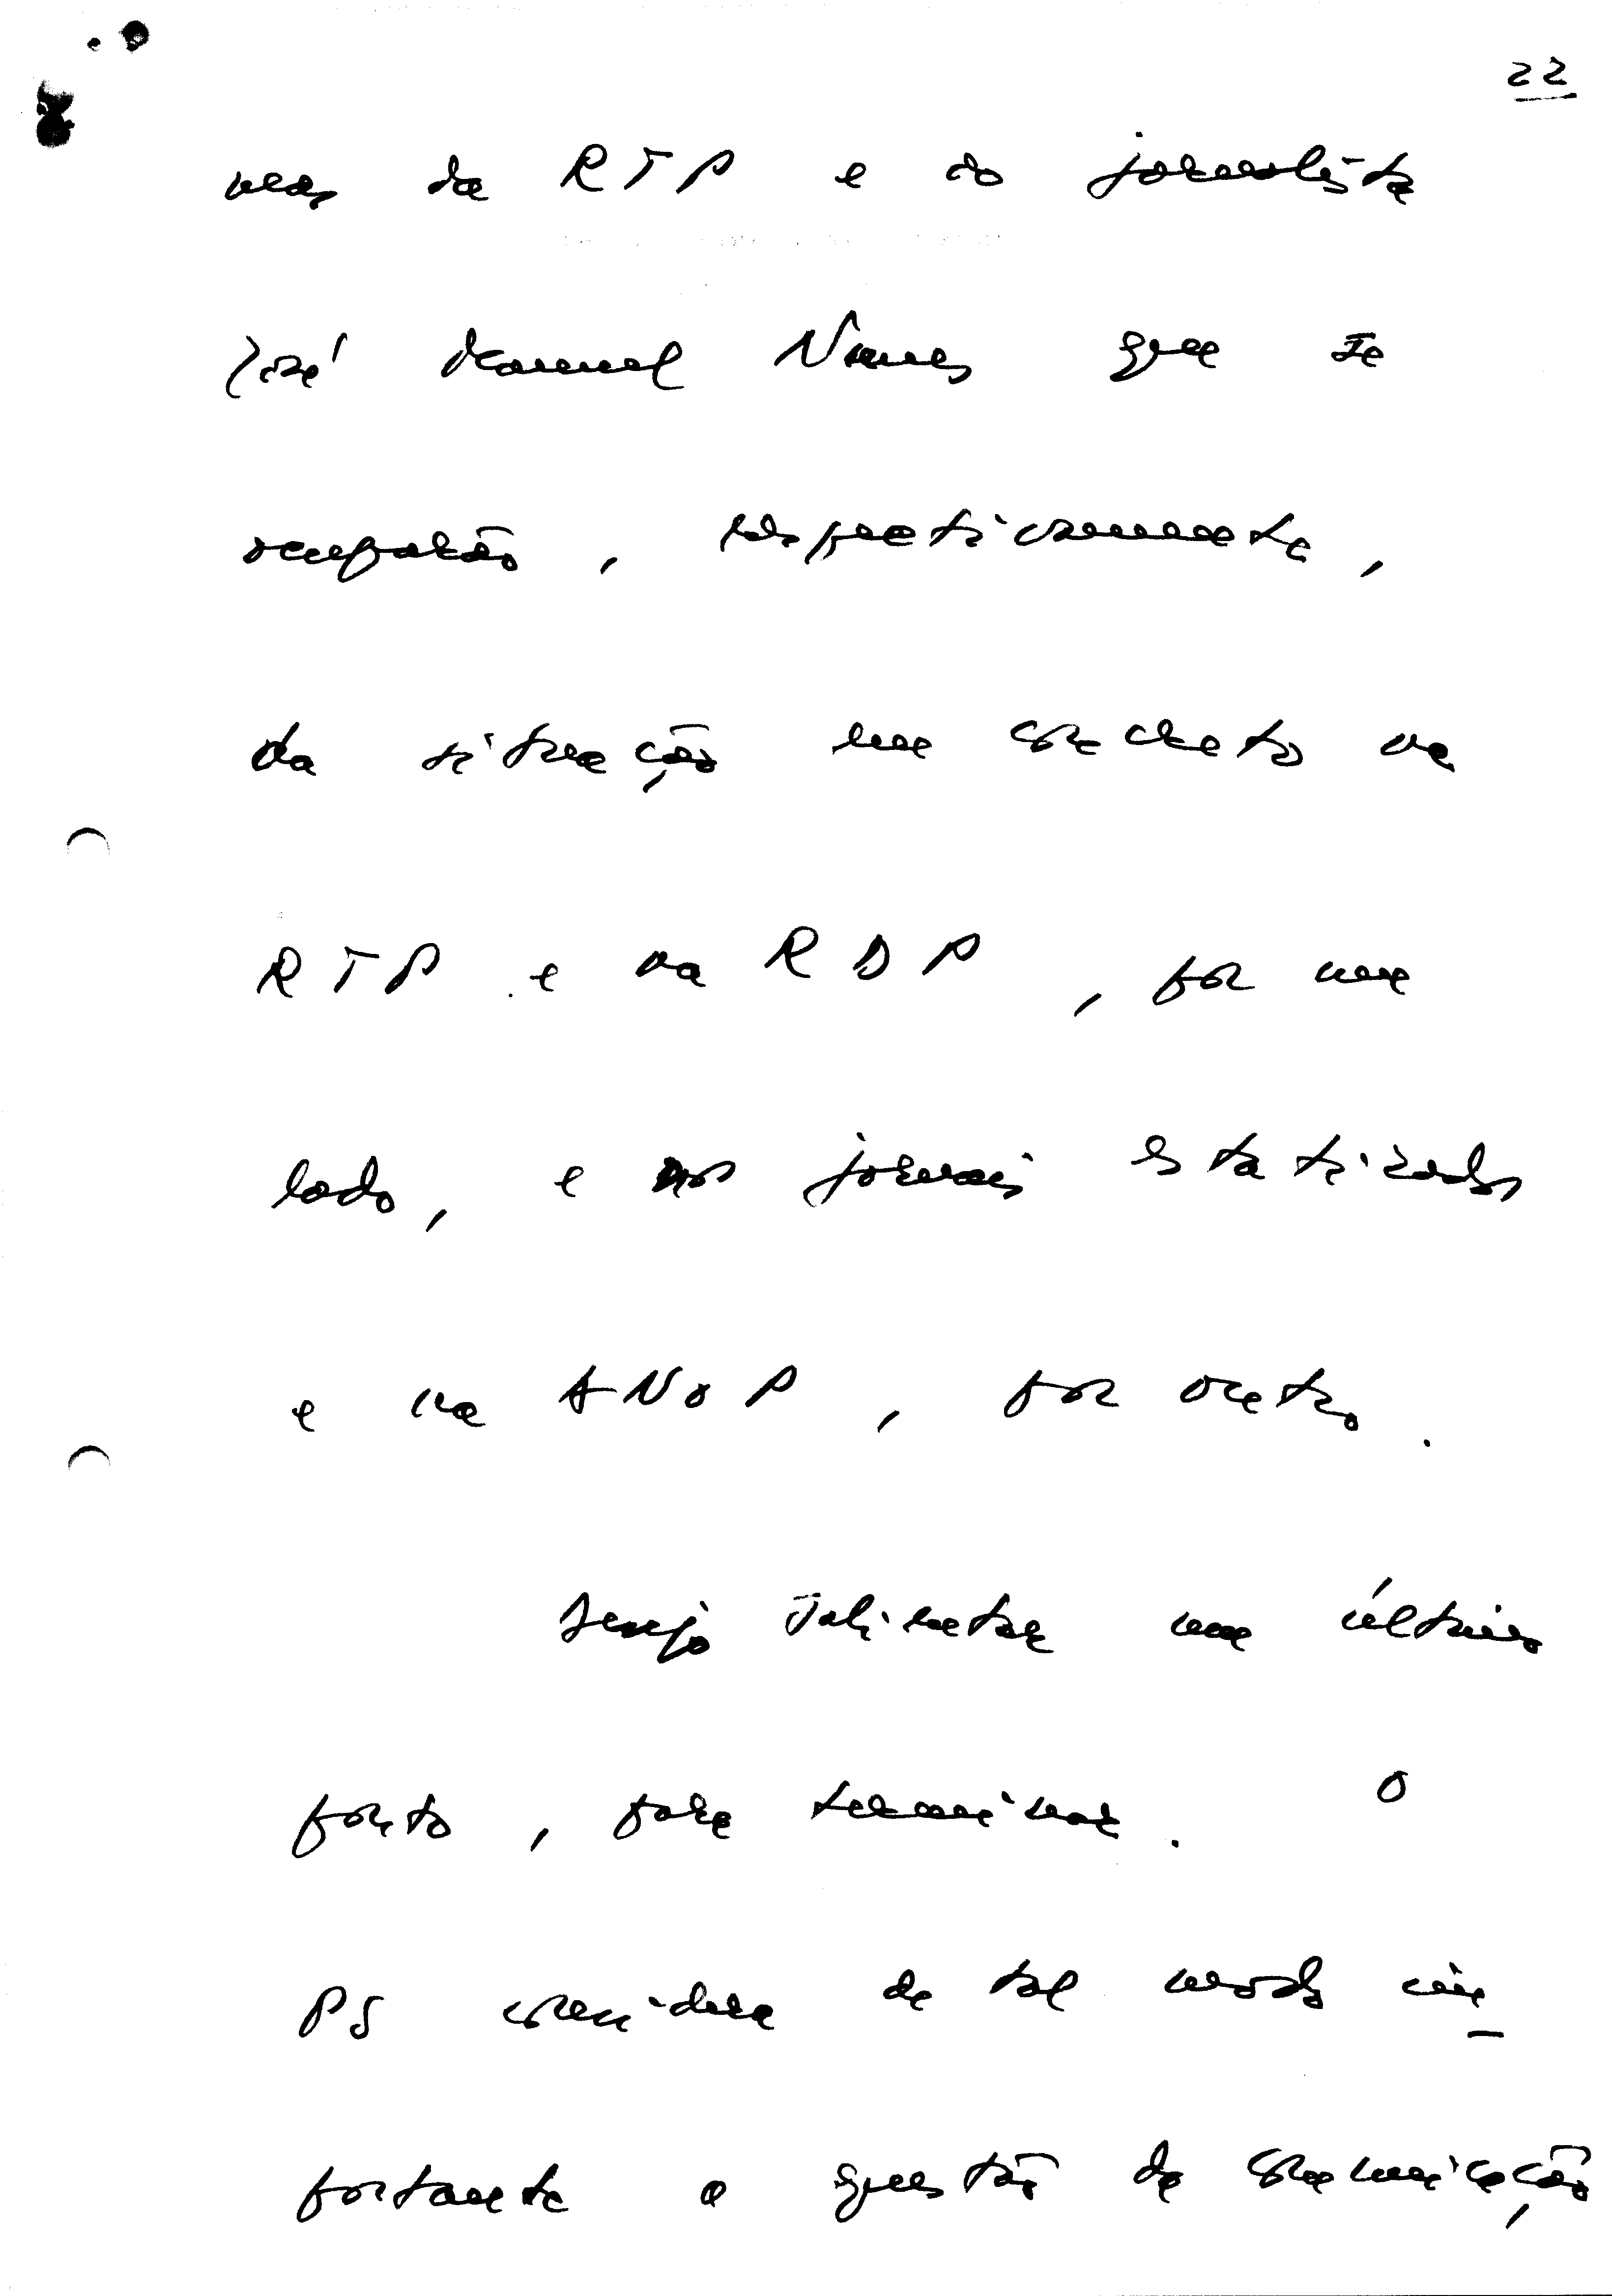 22
da RTP e do jornalista
José Manuel Nunes que se
ocuparão, respectivamente,
da situação em concreto na
RTP e na RDP, por um
lado, e nos jornais estatizados
e na ANOP, por outro.
Desejo salientar um último
ponto, para terminar. O
PS considera de tal modo im-
portante a questão da comunicação